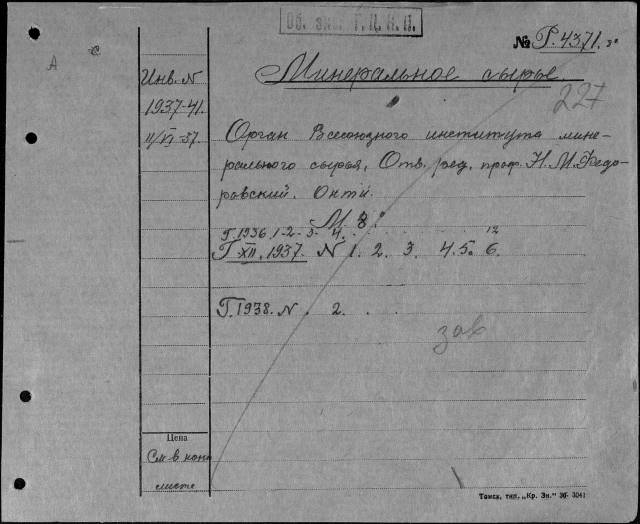 Об. экз. Г.Ц.К.П.
№ Р.4371. зв
А с
Инв. N
1937-41.
11/VI-37.
Минеральное сырье.
227
Орган Всесоюзного института мине-
рального сырья. Отв. ред. проф. Н.М.Федо-
ровский. Онти.
М. 8°
Г.1936. 1-2-3- 4. 12
Г. XII. 1937. N 1. 2. 3. 4.5. 6.
Г.1938. N . 2. . .
зав
Цена
См в кон
листе
Томск, тип. „Кр. Зн." 36- 3041